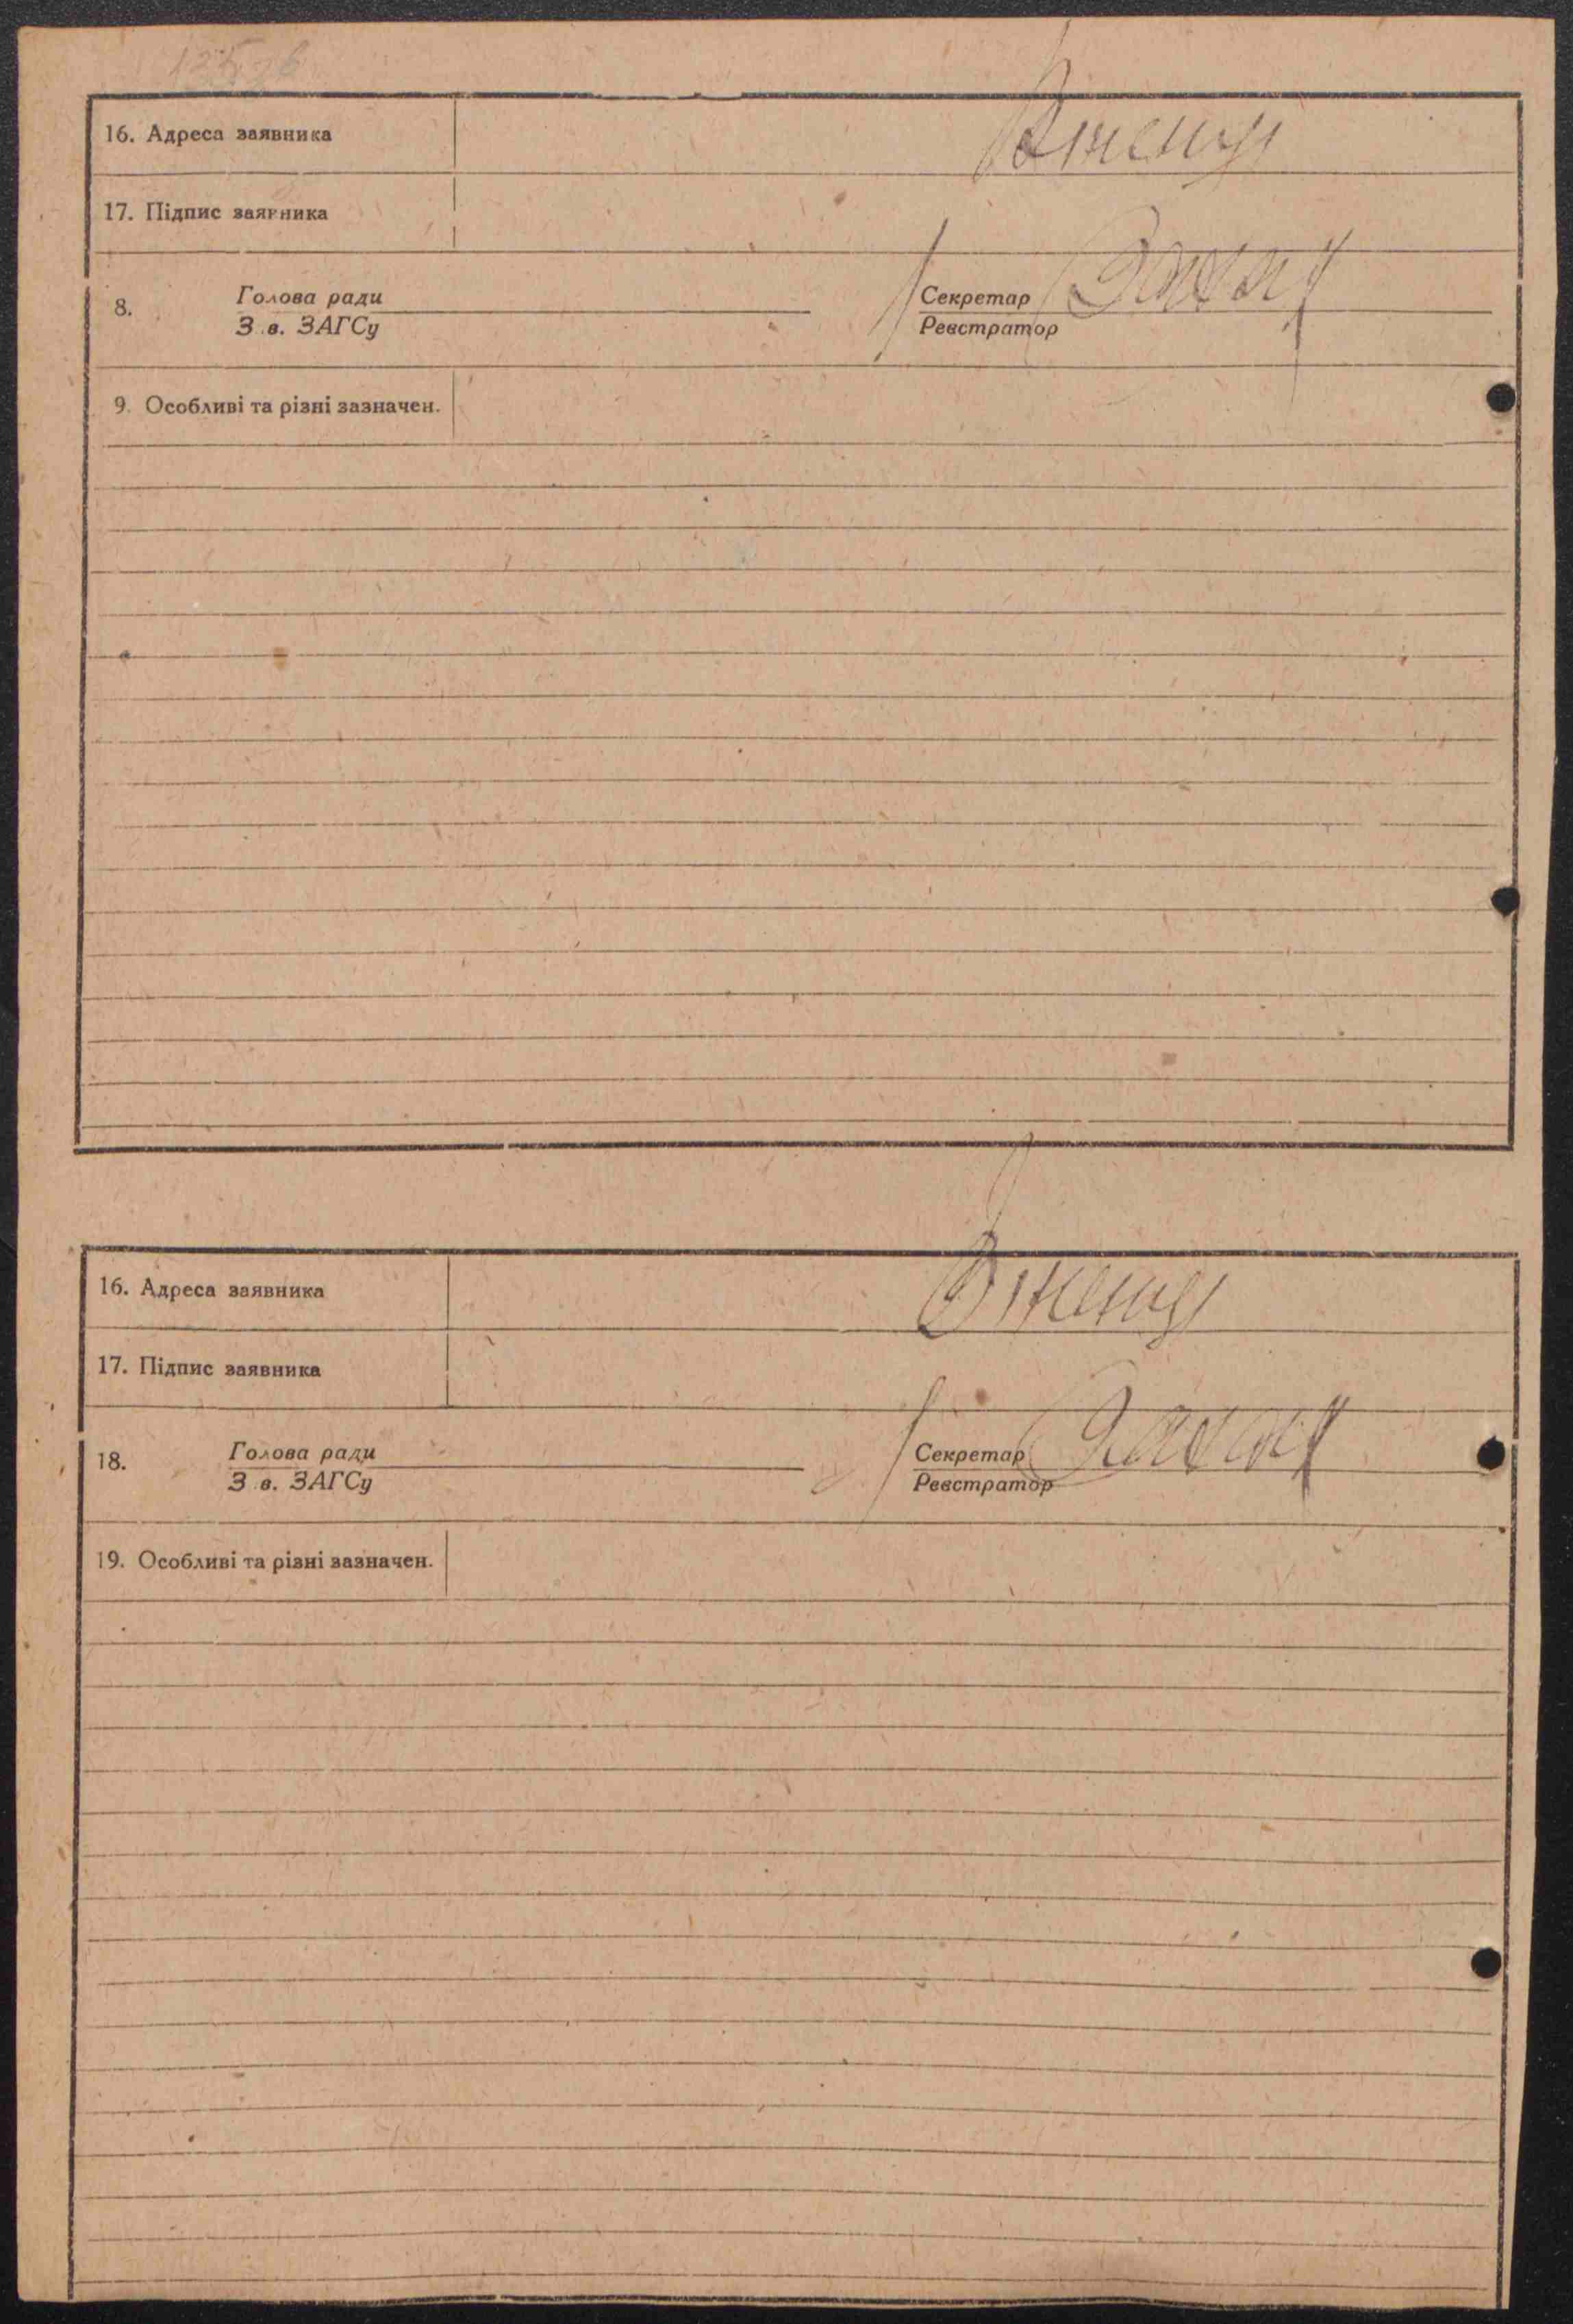 16. Адреса заявника
17. Підпис заявника
8. Голова ради Секретар
З .в. ЗАГСу Реєстратор
9. Особливі та різні зазначен.
16. Адреса заявника
17. Підпис заявника
18. Голова ради Секретар
З .в. ЗАГСу Реєстратор
19. Особливі та різні зазначен.